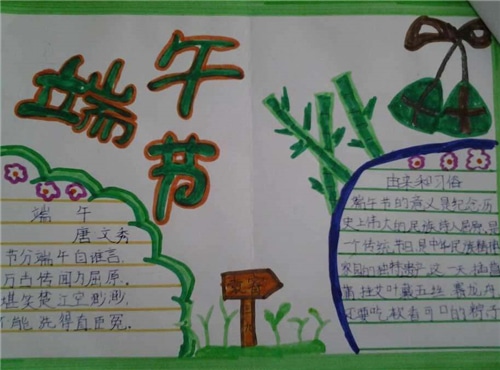 端午节
端 午
唐 文秀
节分端午自谁言,
万古传闻为屈原。
堪笑楚江空渺渺,
不能洗得直臣冤。
由来和习俗
端午节的意义是纪念历
史上伟大的民族诗人屈原,是
一个传统节日,是中华民族精神
家园的独特 这一天,
插挂艾叶戴五丝 赛龙舟
还要吃 可口的粽子